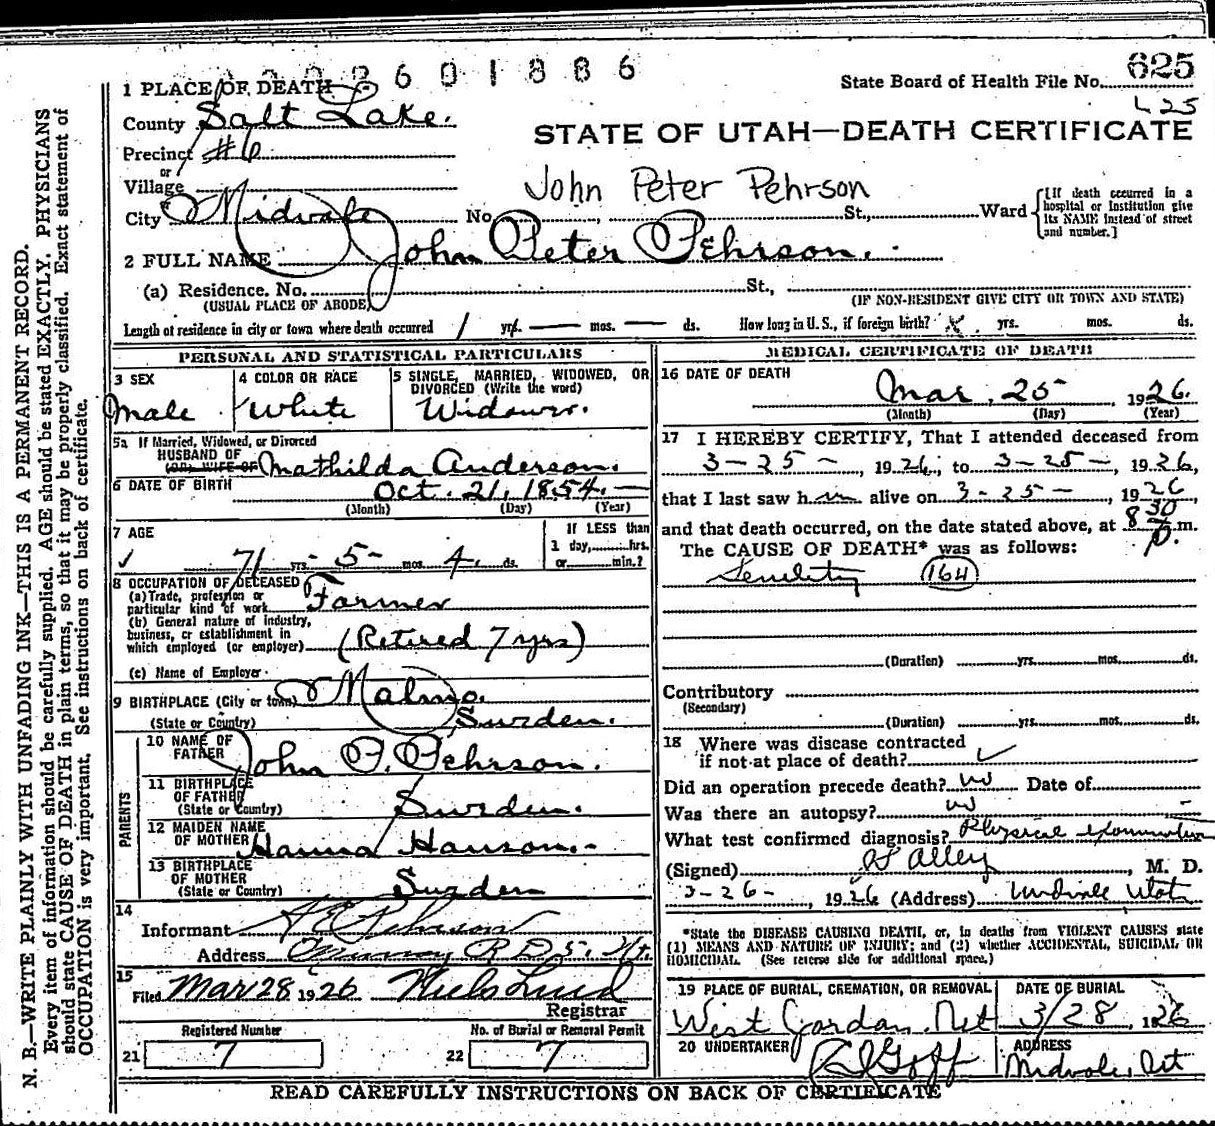 2602601886
State Board of Health File No. 625
L 25
1 PLACE OF DEATH
County Salt Lake.
STATE OF UTAH—DEATH CERTIFICATE
Precinct #6
or
Village
John Peter Pehrson
or
City Midvale No. St., Ward
[If death occurred in a hospital or institution give its NAME instead of street and number.]
2 FULL NAME John Peter Pehrson.
(a) Residence. No. St.,
(USUAL PLACE OF ABODE) (IF NON-RESIDENT GIVE CITY OR TOWN AND STATE)
Length of residence in city or town where death occurred 1 yrs. — mos. — ds. How long in U. S., if foreign birth? X yrs. mos. ds.
PERSONAL AND STATISTICAL PARTICULARS
3 SEX Male
4 COLOR OR RACE White
5 SINGLE, MARRIED, WIDOWED, OR DIVORCED (Write the word) Widower.
5a If Married, Widowed, or Divorced
HUSBAND OF
(OR) WIFE OF Mathilda Anderson.
6 DATE OF BIRTH Oct. 21, 1854. —
(Month) (Day) (Year)
7 AGE
✓ 71 yrs. 5 mos. 4 ds.
If LESS than 1 day, hrs. or min.?
8 OCCUPATION OF DECEASED
(a) Trade, profession or particular kind of work Farmer
(b) General nature of industry, business, or establishment in which employed (or employer) (Retired 7 yrs)
(c) Name of Employer
9 BIRTHPLACE (City or town) Malmo.
(State or Country) Sweden.
PARENTS
10 NAME OF FATHER John P. Pehrson.
11 BIRTHPLACE OF FATHER (State or Country) Sweden.
12 MAIDEN NAME OF MOTHER Hanna Hanson.
13 BIRTHPLACE OF MOTHER (State or Country) Sweden
14
Informant Pehrson
Address Murray R D 5. Ut.
15
Filed Mar 28 1926 Niels Lind
Registrar
Registered Number No. of Burial or Removal Permit
21 7 22 7
MEDICAL CERTIFICATE OF DEATH
16 DATE OF DEATH
Mar. 25 1926.
(Month) (Day) (Year)
17 I HEREBY CERTIFY, That I attended deceased from
3-25-, 1926, to 3-25-, 1926,
that I last saw him alive on 3-25-, 1926
and that death occurred, on the date stated above, at 8 30 p. m.
The CAUSE OF DEATH* was as follows:
Senility 164
(Duration) yrs. mos. ds.
Contributory
(Secondary)
(Duration) yrs. mos. ds.
18 Where was disease contracted
if not at place of death? ✓
Did an operation precede death? no Date of
Was there an autopsy? no —
What test confirmed diagnosis? Physical examination
(Signed) Alley, M. D.
3-26-, 1926 (Address) Midvale Utah
*State the DISEASE CAUSING DEATH, or, in deaths from VIOLENT CAUSES state
(1) MEANS AND NATURE OF INJURY; and (2) whether ACCIDENTAL, SUICIDAL OR
HOMICIDAL. (See reverse side for additional space.)
19 PLACE OF BURIAL, CREMATION, OR REMOVAL DATE OF BURIAL
West Jordan, Ut 3/28, 1926
20 UNDERTAKER ADDRESS
Goff Midvale, Ut
READ CAREFULLY INSTRUCTIONS ON BACK OF CERTIFICATE
N. B.—WRITE PLAINLY WITH UNFADING INK—THIS IS A PERMANENT RECORD.
Every item of information should be carefully supplied. AGE should be stated EXACTLY. PHYSICIANS
should state CAUSE OF DEATH in plain terms, so that it may be properly classified. Exact statement of
OCCUPATION is very important. See instructions on back of certificate.